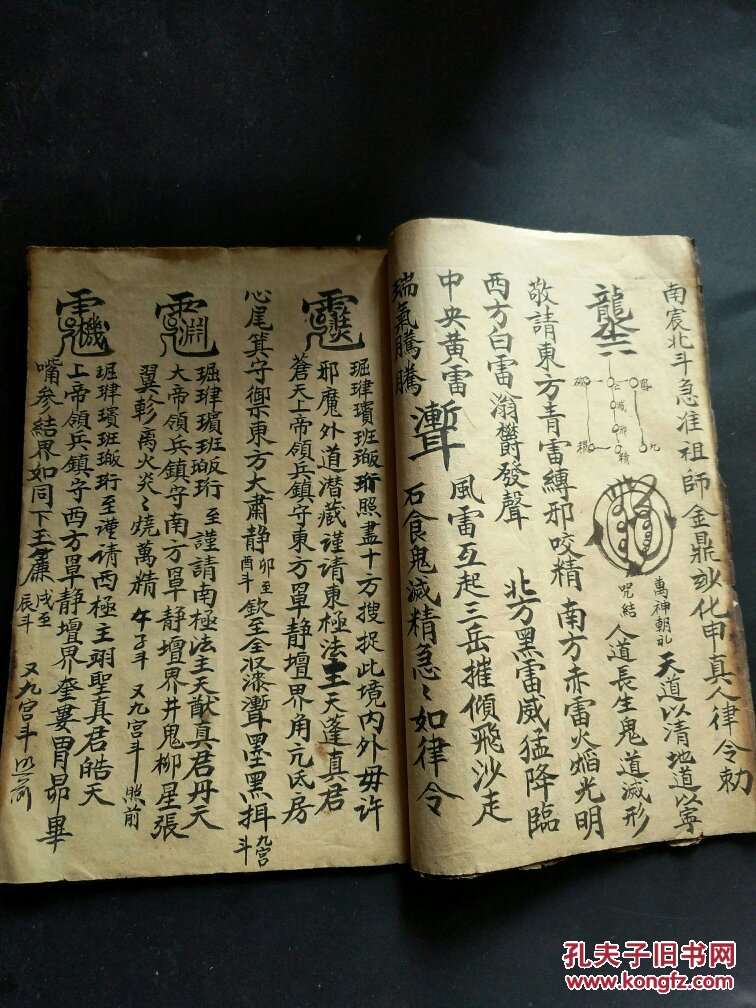 南宸北斗急准祖師金鼎妙化申真人律令勅
萬神朝礼 天道以清地道以寧
咒結 人道長生鬼道滅形
敬請東方青雷縛邪咬精 南方赤雷火焰光明
西方白雷滃欝發聲 北方黑雷威猛降臨
中央黄雷 風雷互起三岳摧傾飛沙走
瑞氣騰騰 石食鬼滅精急〻如律令
琩珒瓆班瑖珩照盡十方搜捉此境内外毋许
邪魔外道潜藏謹请東極法主天蓬真君
蒼天上帝領兵鎮守東方罩静壇界角亢氐房
心尾箕守禦東方大肅静 卯至酉斗 欽至全収漆聻墨黑揖 九宫斗
琩珒瓆班瑖珩 至謹請南極法主天猷真君丹天
大帝領兵鎮守南方罩静壇界井鬼柳星張
翼軫离火炎〻燒萬精 午子斗 又九宫斗 照前
琩珒瓆班瑖珩至謹请西極主翊聖真君皓天
上帝領兵鎮守西方罩静壇界奎婁胃昴畢
嘴参結界如同下玉簾 戌至辰斗 又九宫斗
孔夫子旧书网
www.kongfz.com